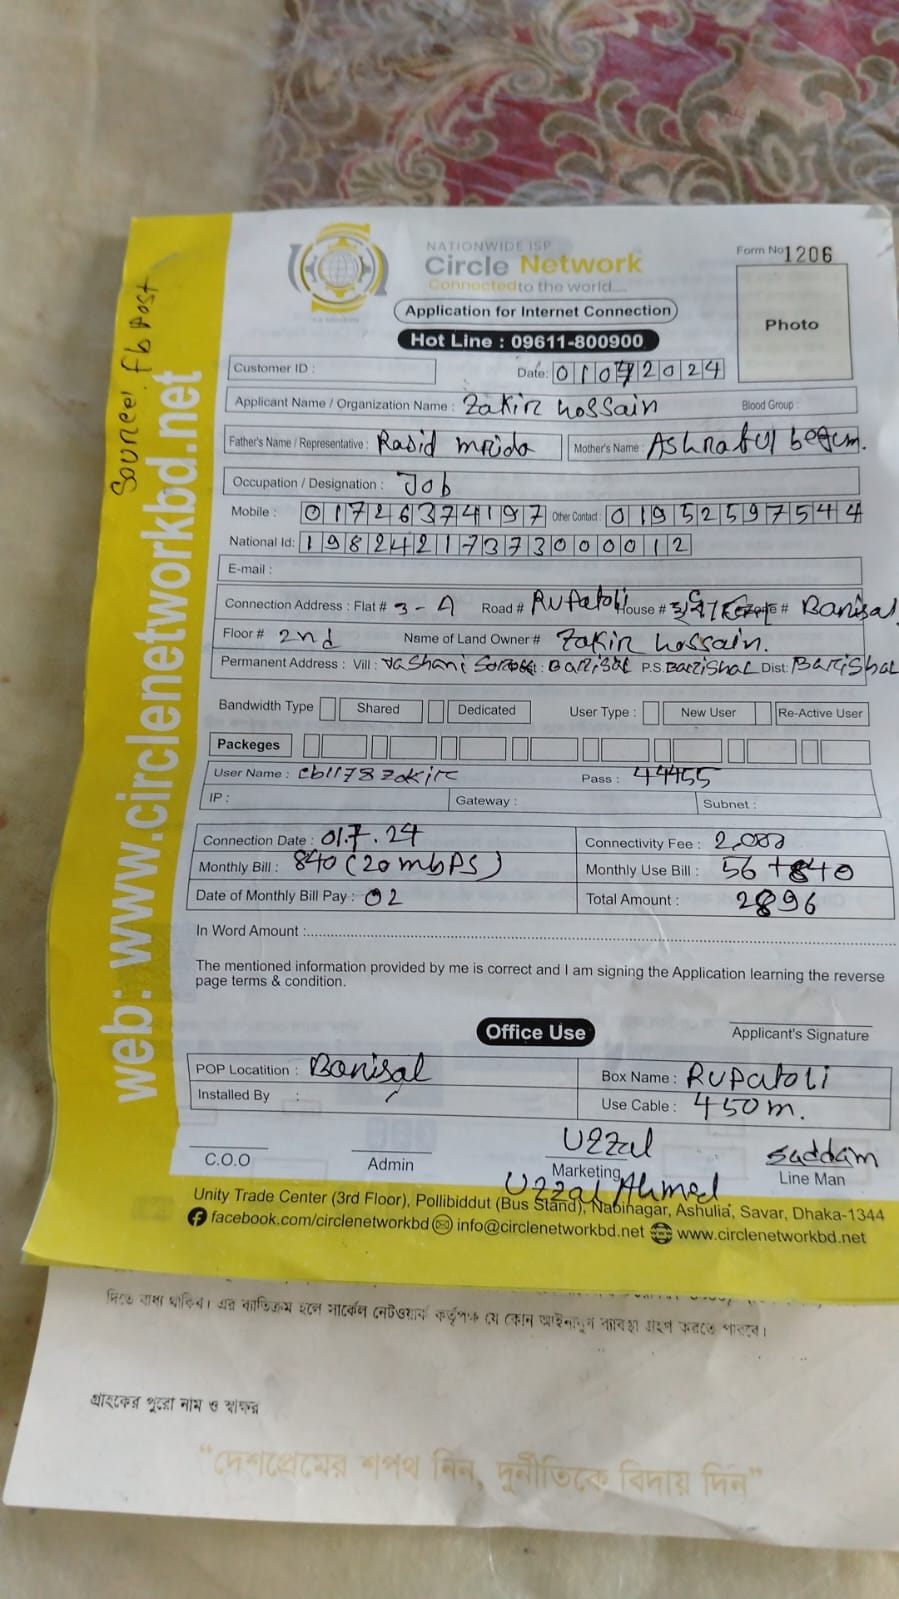 NATIONWIDE ISP
Circle Network
Connected to the world....
Form No 1206
Application for Internet Connection
Photo
Hot Line : 09611-800900
Source: fb post
web: www.circlenetworkbd.net
Customer ID :
Date: 01072024
Applicant Name / Organization Name : Zakir hossain Blood Group :
Father's Name / Representative : Rasid mrida Mother's Name : Ashraful begum.
Occupation / Designation : Job
Mobile : 01726374197 Other Contact : 01952597544
National Id: 19824217373000012
E-mail :
Connection Address : Flat # 3-A Road # Rupatoli House # Barisal
Floor # 2nd Name of Land Owner # Zakir hossain.
Permanent Address : Vill : Barishal P.S. Barishal Dist: Barishal
Bandwidth Type Shared Dedicated User Type : New User Re-Active User
Packeges
User Name : cb1178zakir Pass : 44455
IP : Gateway : Subnet :
Connection Date : 01.7.24 Connectivity Fee : 2,000
Monthly Bill : 840 (20 mbps) Monthly Use Bill : 56 + 840
Date of Monthly Bill Pay : 02 Total Amount : 2896
In Word Amount :
The mentioned information provided by me is correct and I am signing the Application learning the reverse
page terms & condition.
Office Use
Applicant's Signature
POP Locatition : Barisal Box Name : Rupatoli
Installed By : Use Cable : 450 m.
Uzzal saddam
C.O.O Admin Marketing Line Man
Uzzal Ahmed
Unity Trade Center (3rd Floor), Pollibiddut (Bus Stand), Nabinagar, Ashulia, Savar, Dhaka-1344
facebook.com/circlenetworkbd info@circlenetworkbd.net www.circlenetworkbd.net
দিতে বাধ্য থাকিব। এর ব্যতিক্রম হলে সার্কেল নেটওয়ার্ক কর্তৃপক্ষ যে কোন আইনানুগ ব্যবস্থা গ্রহণ করতে পারবে।
গ্রাহকের পুরো নাম ও স্বাক্ষর
“দেশপ্রেমের শপথ নিন, দুর্নীতিকে বিদায় দিন”